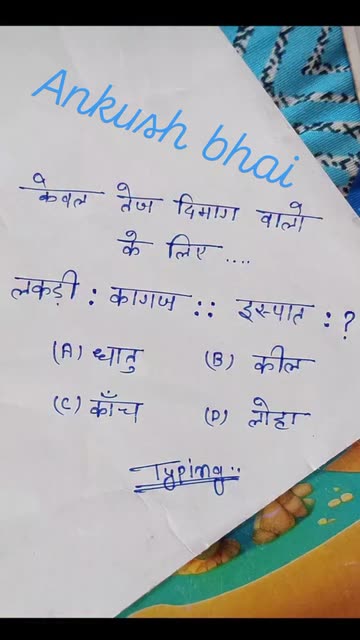 Ankush bhai
केवल तेज दिमाग वालो
के लिए ....
लकड़ी : कागज :: इस्पात : ?
(A) धातु (B) कील
(C) काँच (D) लोहा
Typing..